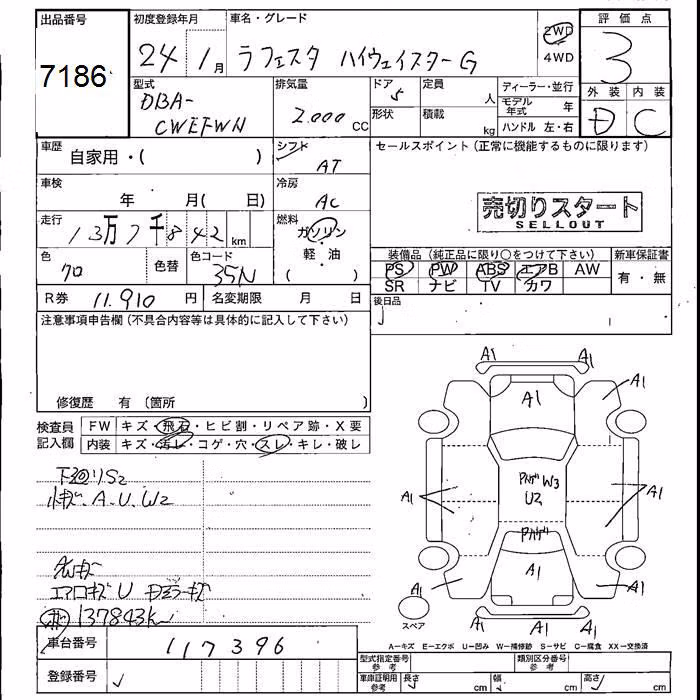 出品番号
7186
初度登録年月
24 1月
車名・グレード
ラフェスタ ハイウェイスターG
2WD
4WD
評価点
3
外装 内装
D C
型式
DBA-
CWEFWN
排気量
2.000 CC
ドア 5
形状
定員 人
積載 kg
ディーラー・並行
モデル年式 年
ハンドル 左・右
車歴
自家用・( )
シフト
AT
セールスポイント (正常に機能するものに限ります)
車検
年 月( 日)
冷房
AC
売切りスタート
SELLOUT
走行
13万7千842 km
燃料
ガソリン
軽・油
( )
色
70
色替
色コード
35N
装備品 (純正品に限り○をつけて下さい)
PS PW ABS エアB AW
SR ナビ TV カワ
新車保証書
有・無
R券 11.910 円
名変期限 月 日
後日品
注意事項申告欄 (不具合内容等は具体的に記入して下さい)
修復歴 有 〔箇所 〕
検査員
記入欄
FW キズ・飛石・ヒビ割・リペア跡・X要
内装 キズ・汚レ・コゲ・穴・スレ・キレ・破レ
下回りS2
小キズ、A、U、W2
エアロキズU
137843k
車台番号
117396
登録番号
A1 A1
A1 A1 A1
W3
U2
A1 A1
A1
A1 A1
A1 A1
スペア
A―キズ E―エクボ U―凹み W―補修跡 S―サビ C―腐食 XX―交換済
型式指定番号
参考
類別区分番号
参考
車庫証明用
参考
長さ cm
幅 cm
高さ cm